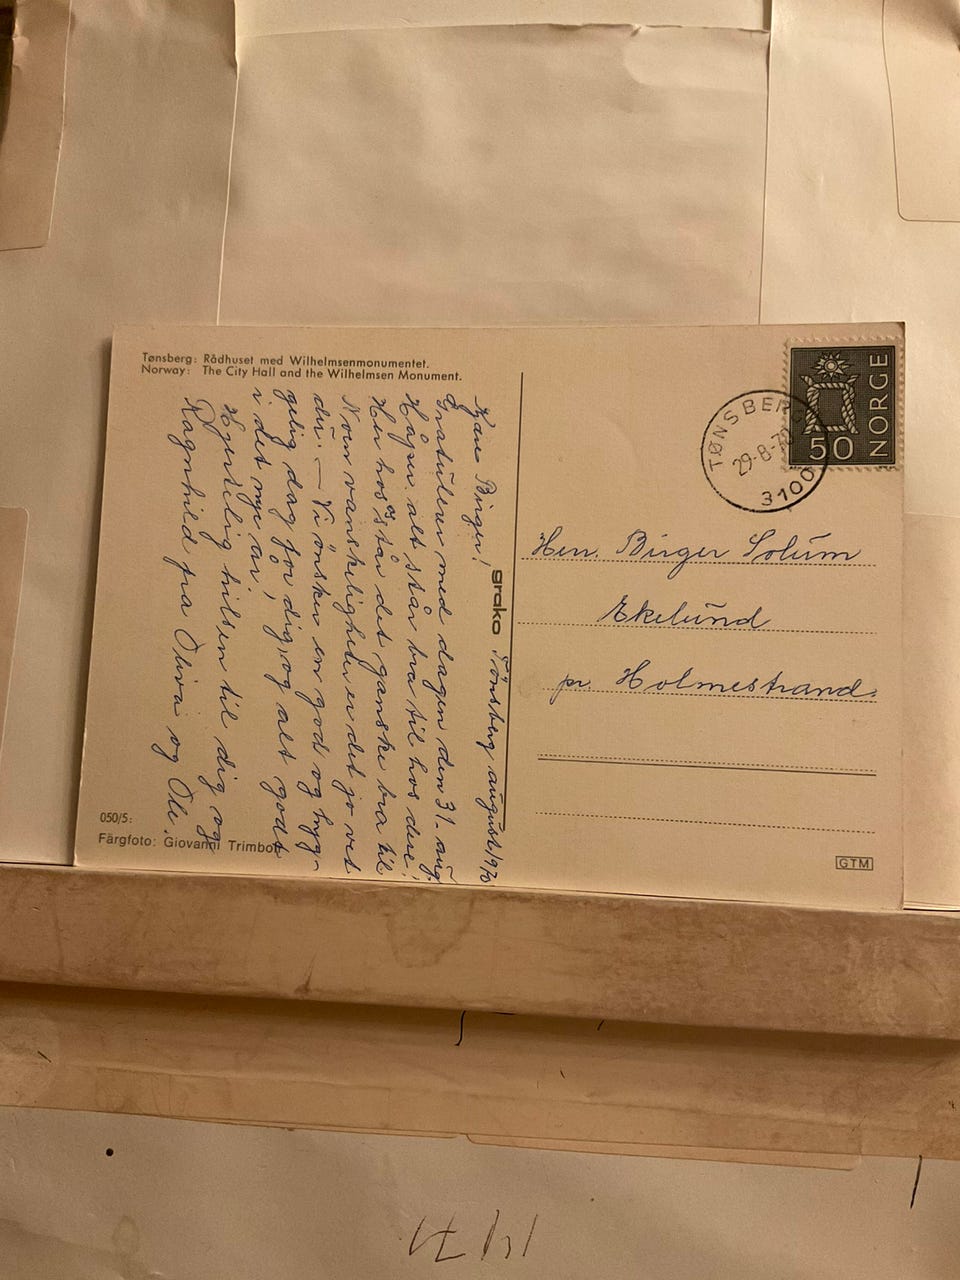 Tønsberg: Rådhuset med Wilhelmsenmonumentet.
Norway: The City Hall and the Wilhelmsen Monument.
Tönsberg august 1970
Kjære Birger!
Gratulerer med dagen den 31. aug.
Håper alt står bra til hos dere!
Her hos os står det ganske bra til
Noen vanskeligheter er det jo vet
du. — Vi önsker en god og hyg-
gelig dag for dig, og alt godt
i det nye år,
Hjertelig hilsen til dig og
Ragnhild fra Oliva og Ole.
050/5:
Färgfoto: Giovanni Trimboli
grako
TØNSBERG
29-8-70
3100
50
NORGE
Herr. Birger Solum
Ekelund
pr. Holmestrand.
GTM